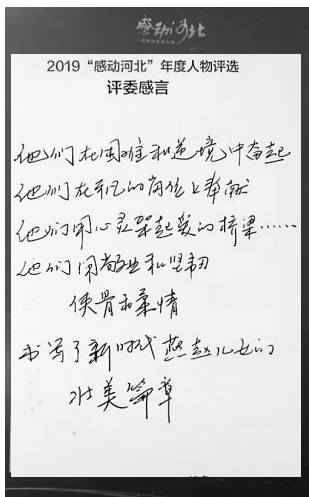 感动河北
2019“感动河北”年度人物评选
评委感言
他们在困难和逆境中奋起
他们在平凡的岗位上奉献
他们用心灵架起爱的桥梁……
他们用敬业和坚韧
侠骨和柔情
书写了新时代燕赵儿女的
壮美篇章